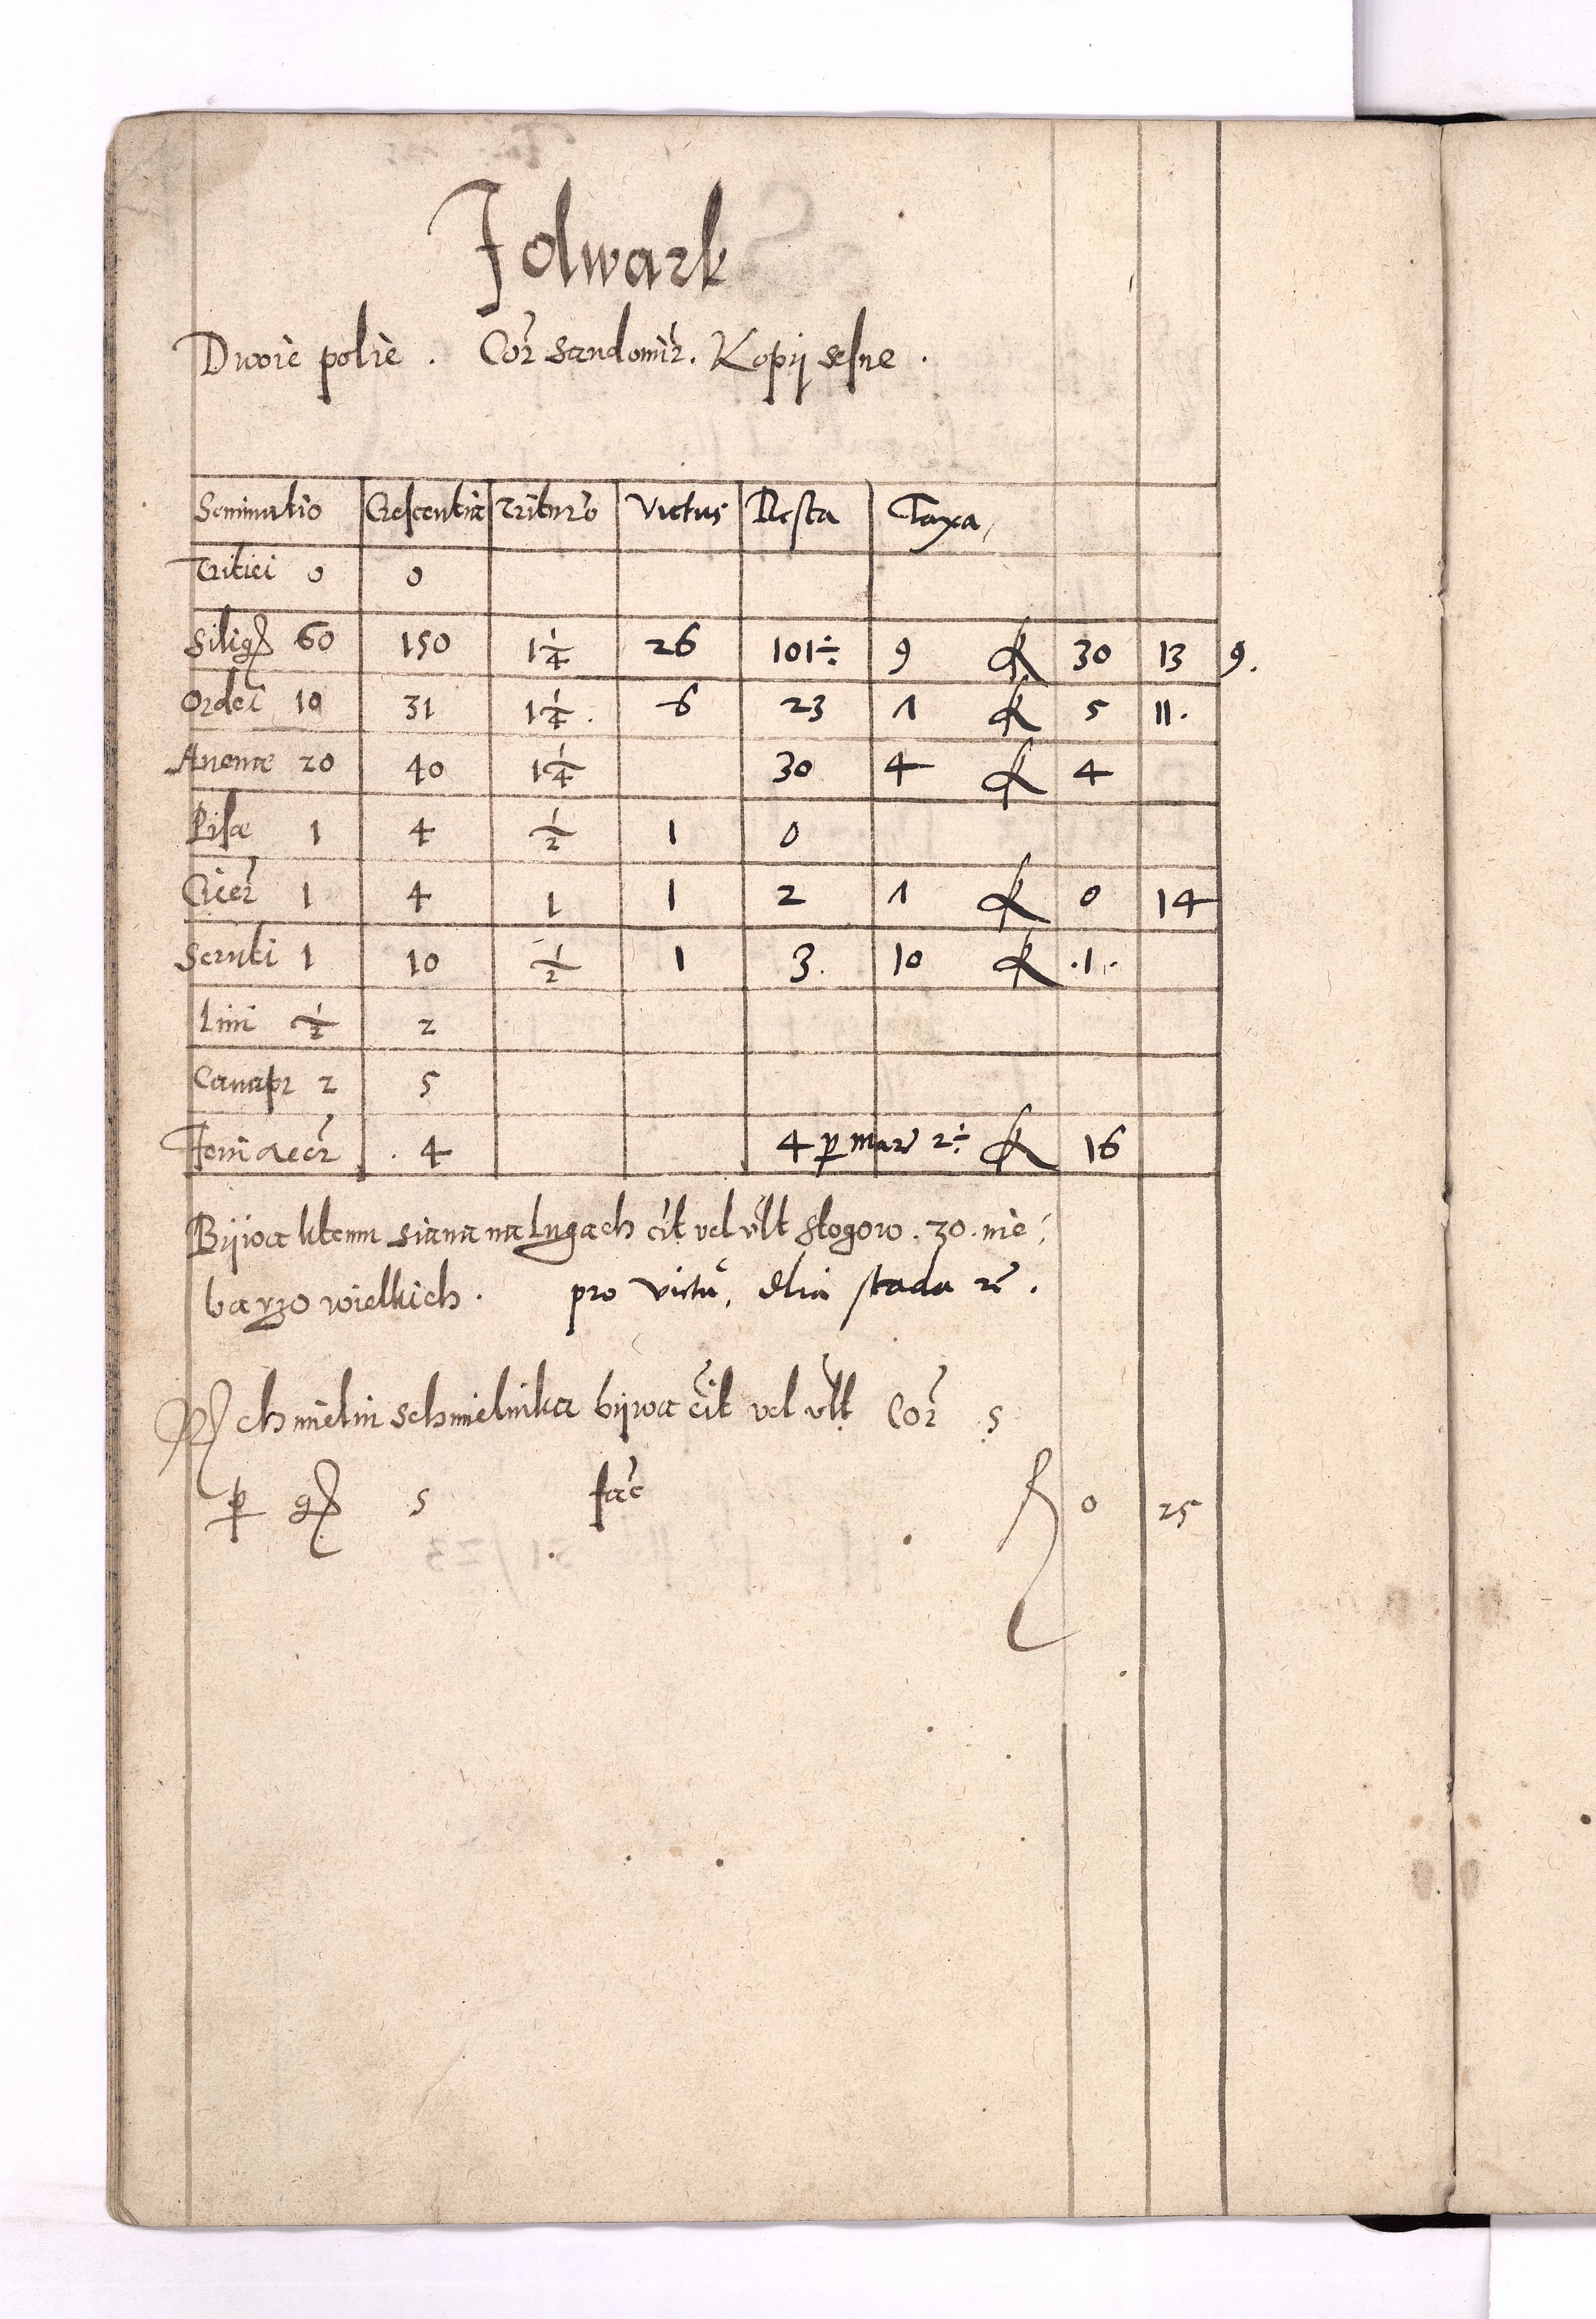 Folwark
Dwoie polie. Cor̃ sandomir̃. Kopÿ sesne.
Seminatio Crescentia Trituro Victus Resta Taxa
Tritici 0 0
Silig 60 150 1 1/4 26 101÷ 9 30 13 9.
Ordei 10 31 1 1/4. 6 23 1 5 11.
Auenæ 20 40 1 1/4 30 4 4
Pisæ 1 4 1/2 1 0
Cicer̃ 1 4 1 1 2 1 0 14
1 10 1/2 1 3. 10 .1.
Lini 1/2 2
Canapr 2 5
Feni acer̃ . 4 4 p mar 2÷ 16
Bÿwa ktemu siana na lugach cit̃ vel vl̃t stogow. 30. nie
barzo wielkich. pro victu, dlia stada rẽ.
chmieliu schmielnika bÿwa cit̃ vel vl̃t Cor̃ 5
p g 5 fac̃ 0 25